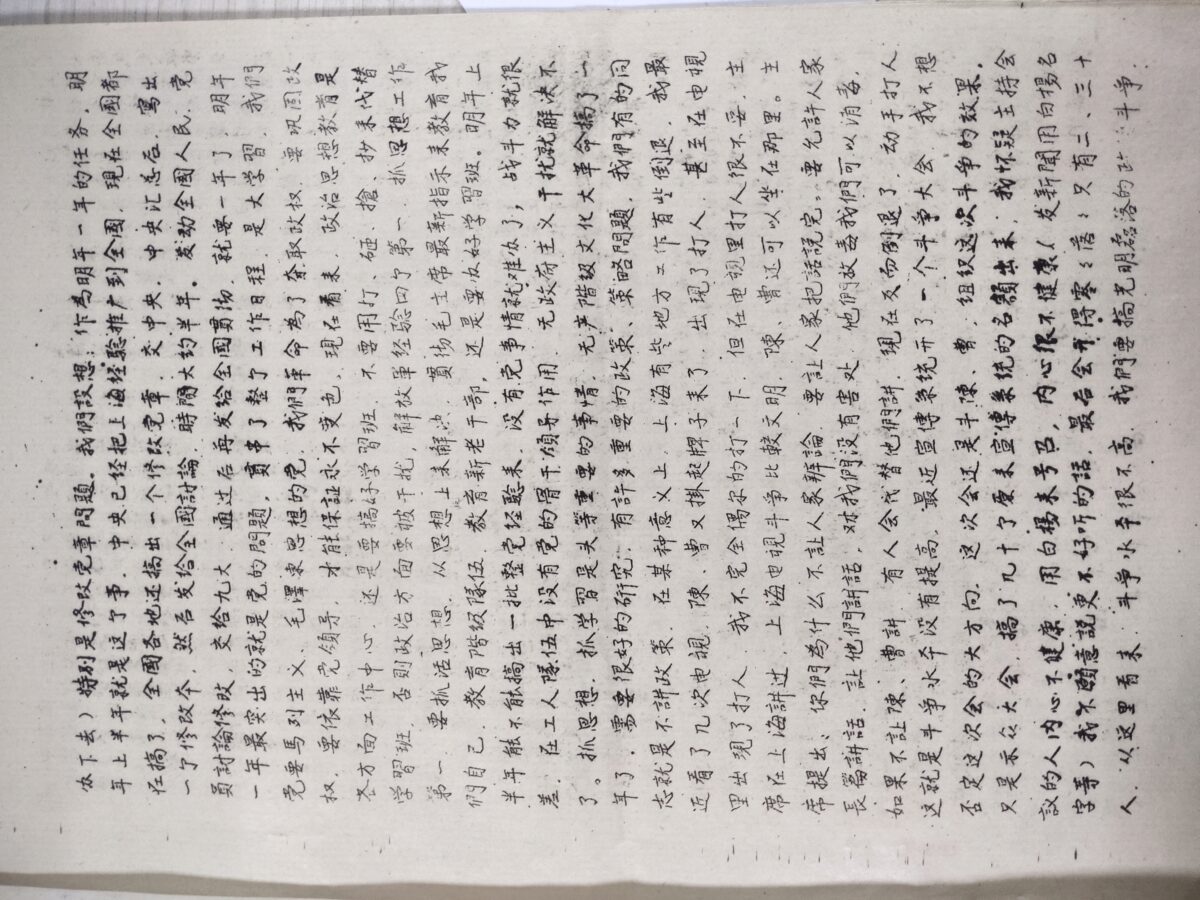 办下去）特别是修改党章問題。我們設想：作為明年一年的任务，明
年上半年就是这个事，中央已经把上海经驗推广到全國，現在全國都
在搞了，全國各地还搞出一个修改党章，交中央，中央汇总后，寫出
一个修改本，然后发给全國討論，時間大約半年。发动全國人民、党
員討論修改，交給九大，通过后再发给全國貫彻，就要一年了，明年
一年最突出的就是党的問題，貫串了整个工作日程，是大学習，我們
党要馬列主义、毛澤東思想的党，我們革命為了夺取政权，要巩固政
权，要依靠党領导，才能保証永不变色，現在看来，政治思想教育是
各方面工作中心，还是要搞好学習班，不要用打、砸、搶、抄来代替
学習班，否則政治方面要被干扰，解放軍经驗四个第一，抓思想工作
第一，要抓活思想，从思想上来解决，貫彻毛主席最新指示来教育我
們自己，教育階級隊伍，教育新老干部，还是要办好学習班。明年上
半年能不能搞出一批整党经驗来，没有党事情就难办了，战斗力就很
差，在工人隊伍中没有党的骨干領导作用，无政府主义干扰就解决不
了。抓思想，抓学習是头等重要的事情，无产階級文化大革命搞了一
年了，需要很好的研究，有許多重要的政策、策略問題，我們有的同
志就是不講政策，在某种意义上，上海有些地方工作有些倒退，我最
近看了几次电視，陳、曹又掛起牌子来了，出現了打人，甚至在电視
里出現了打人，我不完全偶尔的打一下，但在电視里打人很不妥，主
席在上海講过，上海电視斗争比較文明，陳、曹还可以坐在那里。主
席提出：你們為什么不讓人家辨論，要讓人家把話說完。要允許人家
長篇講話，讓他們講話，对我們没有害处，他們放毒我們可以消毒，
如果不讓陳、曹講，有人会代替他們講，現在反而倒退了，动手打人
这就是斗争水平没有提高，最近宣傳系统开了一个斗争大会，我不想
否定这次会的大方向，这次会还是斗陳、曹，組织这次斗争的效果，
只是示众大会，搞了几十个原来宣傳系统的名額出来，我怀疑主持会
議的人内心不健康，用白楊来号召，内心很不健康（发新聞用白楊名
字等）我不願意説更不好听的話，最后会开得零々落々只有二、三十
人，从这里看来，斗争水平很不高，我們要搞光明磊落的政治斗争，